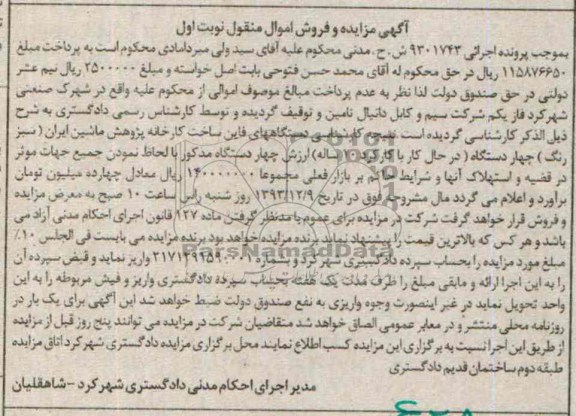 آگهی مزایده و فروش اموال منقول نوبت اول
بموجب پرونده اجرائی ۹۳۰۱۷۴۳ ش.ح.مدنی محکوم علیه آقای سید ولی میردامادی محکوم است به پرداخت مبلغ
۱۱۵۸۷۶۶۵۰ ریال در حق محکوم له آقای محمد حسن فتوحی بابت اصل خواسته و مبلغ ۲۵۰۰۰۰۰ ریال نیم عشر
دولتی در حق صندوق دولت لذا نظر به عدم پرداخت مبالغ موصوف اموالی از محکوم علیه واقع در شهرک صنعتی
شهرکرد فاز یکم شرکت سیم و کابل دانیال تامین و توقیف گردیده و توسط کارشناس رسمی دادگستری به شرح
ذیل الذکر کارشناسی گردیده است نتیجه کارشناسی دستگاههای فاین ساخت کارخانه پژوهش ماشین ایران ( سبز
رنگ ) چهار دستگاه ( در حال کار با کارکرد ساله) ارزش چهار دستگاه مذکور با لحاظ نمودن جمیع جهات موثر
در قضیه و استهلاک آنها و شرایط حاکم بر بازار فعلی مجموعا ۱۴۰۰۰۰۰۰۰ ریال معادل چهارده میلیون تومان
برآورد و اعلام می گردد مال مشروحه فوق در تاریخ ۱۳۹۳/۱۲/۹ روز شنبه راس ساعت ۱۰ صبح به معرض مزایده
و فروش قرار خواهد گرفت شرکت در مزایده برای عموم با مدنظر گرفتن ماده ۱۲۷ قانون اجرای احکام مدنی آزاد می
باشد و هر کس که بالاترین قیمت را پیشنهاد نماید برنده مزایده خواهد بود برنده مزایده می بایست فی الجلس ۱۰٪
مبلغ مورد مزایده را بحساب سپرده دادگستری شهر کرد و واریز نماید و قبض سپرده آن
را به این اجرا ارائه و مابقی مبلغ را ظرف مدت یک هفته بحساب سپرده دادگستری واریز و فیش مربوطه را به این
واحد تحویل نماید در غیر اینصورت وجوه واریزی به نفع صندوق دولت ضبط خواهد شد این آگهی برای یک بار در
روزنامه محلی منتشر و در معابر عمومی الصاق خواهد شد متقاضیان شرکت در مزایده می توانند پنج روز قبل از مزایده
از طریق این اجرا نسبت به برگزاری این مزایده کسب اطلاع نمایند محل برگزاری مزایده دادگستری شهر کرد اتاق مزایده
طبقه دوم ساختمان قدیم دادگستری
مدیر اجرای احکام مدنی دادگستری شهر کرد -شاهقلیان
ParsNamadData